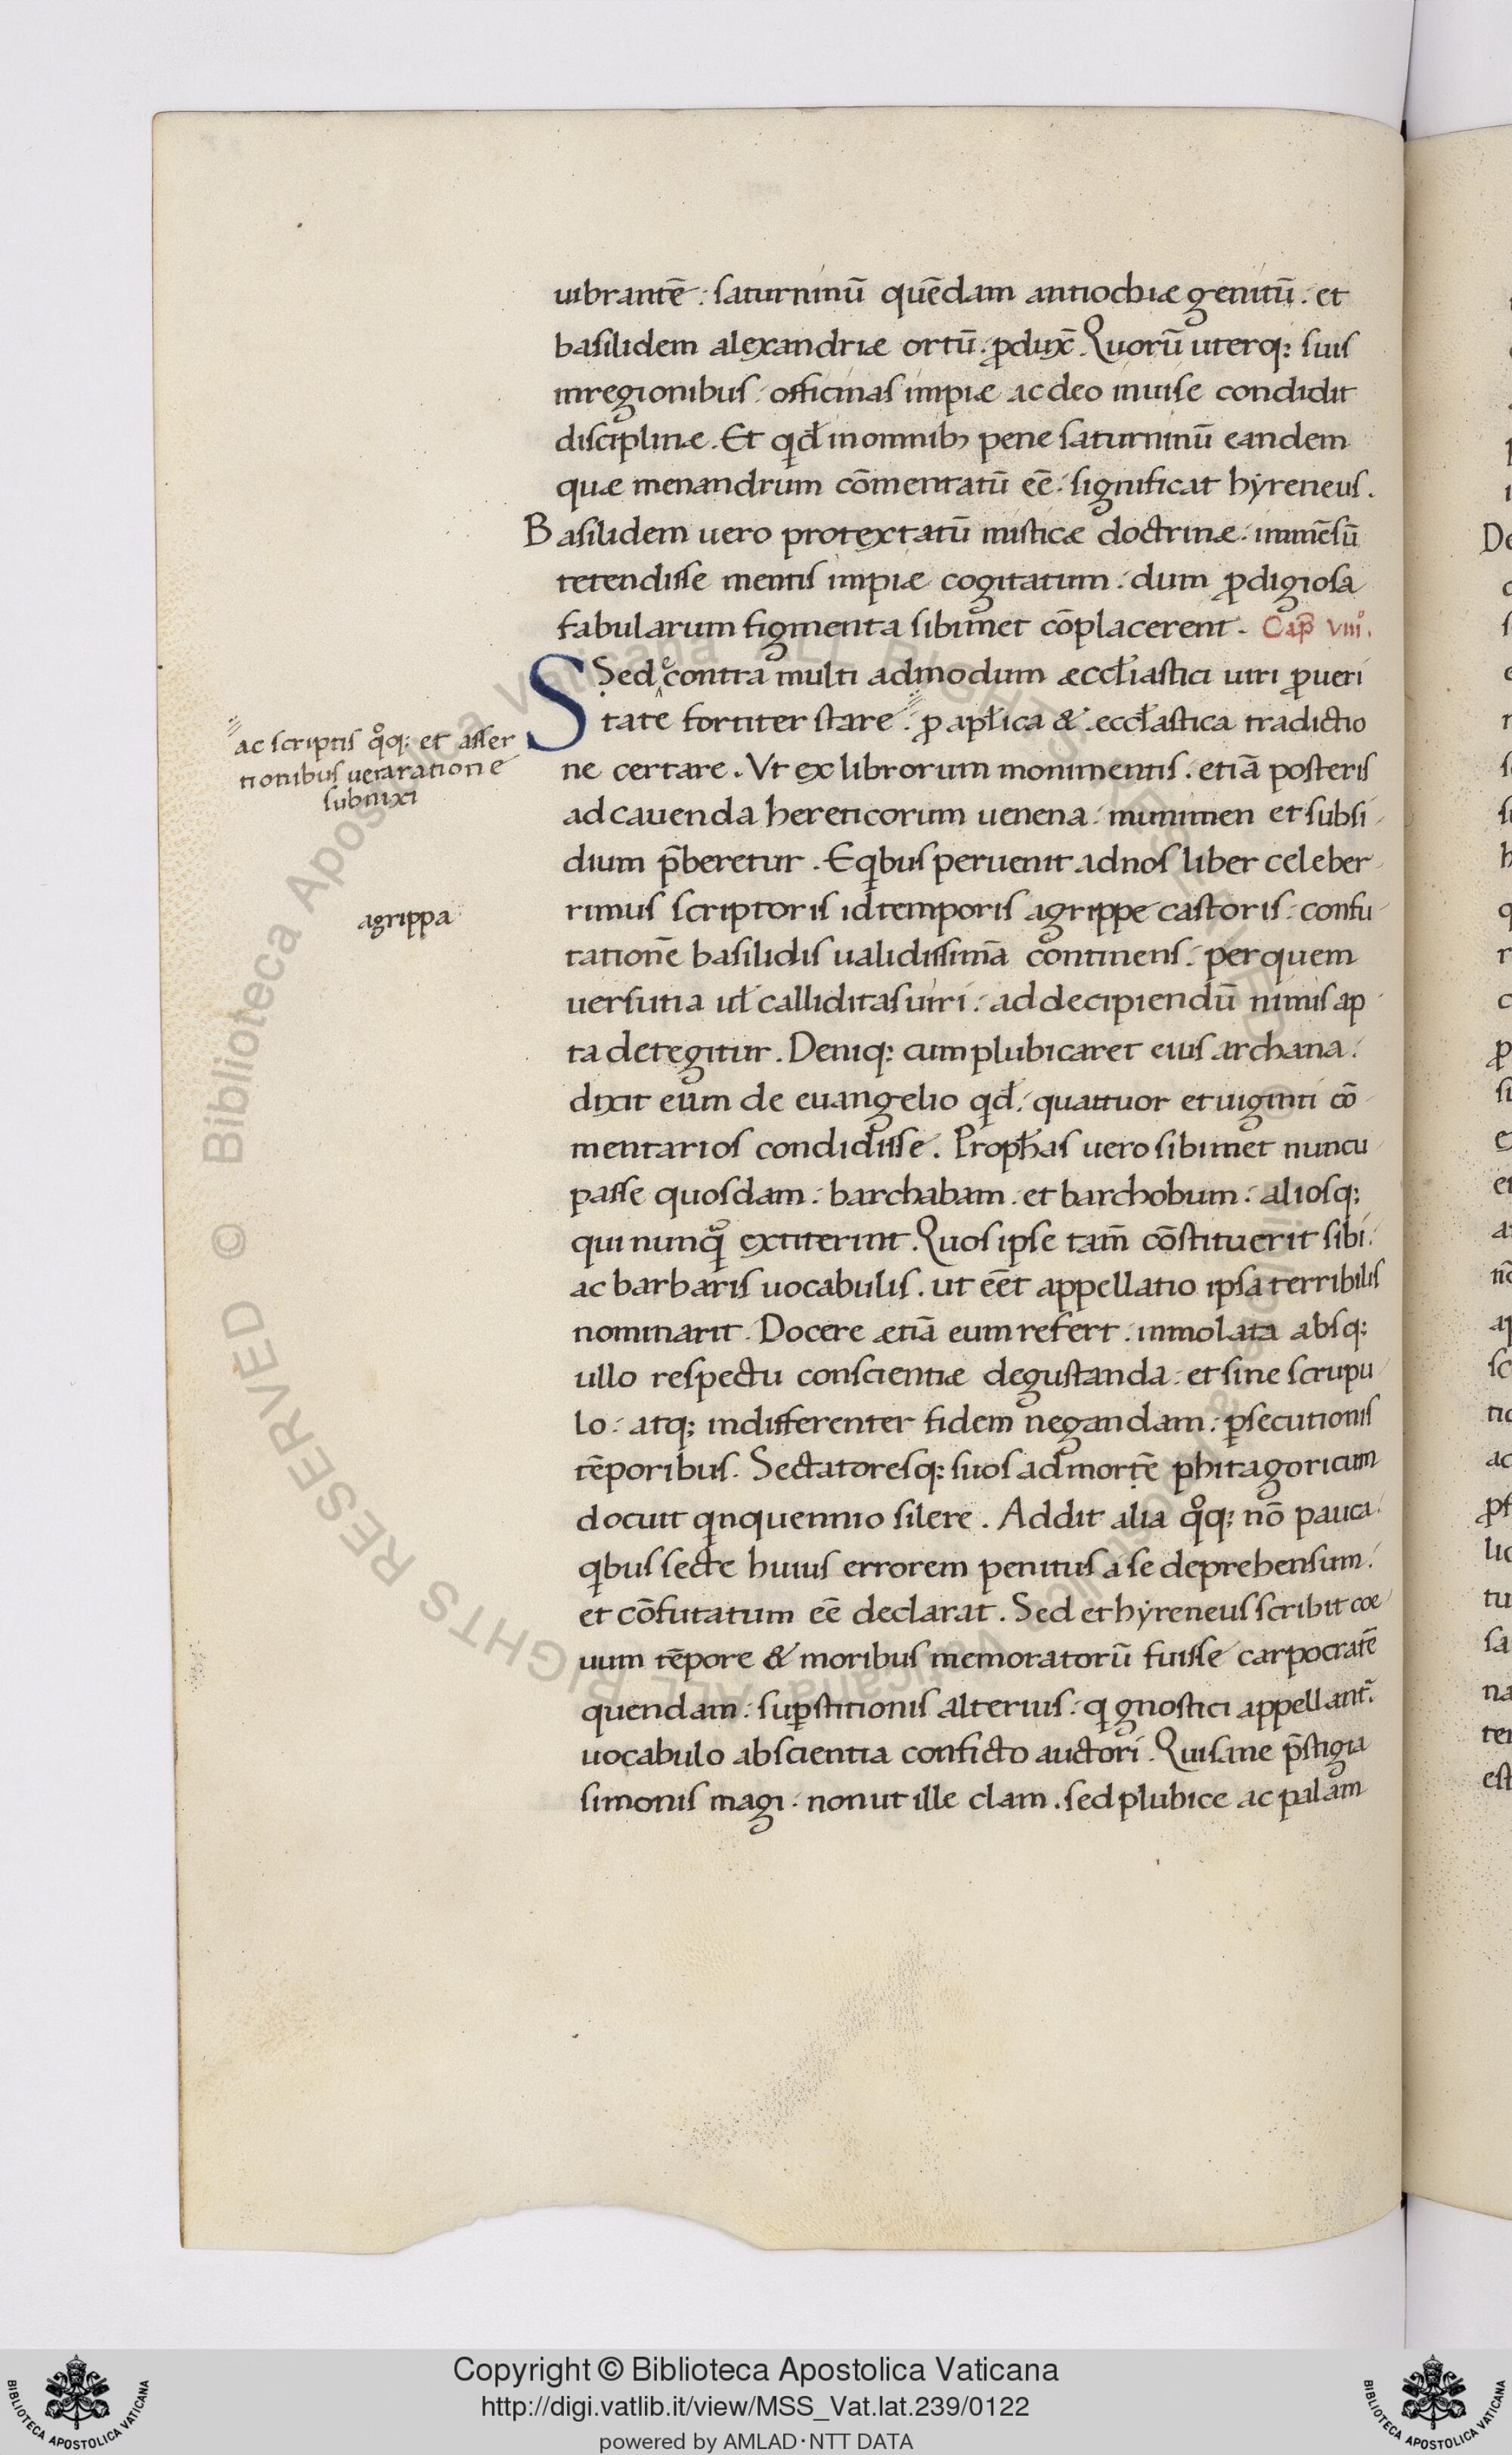 uibrantē. saturninū quēdam antiochiæ genitū. et
basilidem alexandriæ ortū. ꝓdux̄. Quorū uterq; suis
inregionibus. officinas impiæ acdeo inuise condidit
disciplinæ. Et qđ inomnibꝫ pene saturninū eandem
quæ menandrum cōmentatū eē. significat hẏreneus.
Basilidem uero protextatū misticæ doctrinæ. immēsū
tetendisse mentis impiæ cogitatum. dum ꝓdigiosa
fabularum figmenta sibimet cōplacerent. Cap̄ VIIIº.
SSed econtra multi admodum æccl̄iastici uiri ꝓueri
tate fortiter stare. ꝓ apl̄ica & eccl̄astica traditio
ac scriptis qͦq; et asser
tionibus ueraratione
subnixi
ne certare. Vt ex librorum monimentis. etiā posteris
adcauenda hereticorum uenena. munimen et subsi
dium p̄beretur. Eqibus peruenit adnos liber celeber
agrippa
rimus scriptoris idtemporis agrippe castoris. confu
tationē basilidis ualidissimā continens. perquem
uersutia ul̄ calliditasuiri. addecipiendū nimis ap
ta detegitur. Deniq; cumplubicaret eius archana.
dixit eum de euangelio qđ. quattuor etuiginti cō
mentarios condidisse. Proph̄as uero sibimet nuncu
passe quosdam. barchabam. et barchobum. aliosq;
qui nunqᷓ extiterint. Quosipse tam̄ cōstituerit sibi.
ac barbaris uocabulis. ut eēt appellatio ipsa terribilis
nominarit. Docere ætiā eumrefert. inmolata absq;
ullo respectu conscientiæ degustanda. et sine scrupu
lo. atq; indifferenter fidem negandam. ꝑsecutionis
tēporibus. Sectatoresq; suos admortē phitagoricum
docuit qinquennio silere. Addit alia qͦq; nō pauca.
qibus secte huius errorem penitus a se deprehensum.
et cōfutatum eē declarat. Sed ethẏreneus scribit coe
uum tēpore & moribus memoratorū fuisse carpocratē
quendam. suꝑstitionis alterius. qi gnostici appellant̄.
uocabulo abscientia conficto auctori. Quisane p̄stigia
simonis magi. nonut ille clam. sedplubice ac palam
Copyright © Biblioteca Apostolica Vaticana
http://digi.vatlib.it/view/MSS_Vat.lat.239/0122
powered by AMLAD·NTT DATA
© Biblioteca Apostolica Vaticana ALL RIGHTS RESERVED
BIBLIOTECA APOSTOLICA VATICANA
BIBLIOTECA APOSTOLICA VATICANA